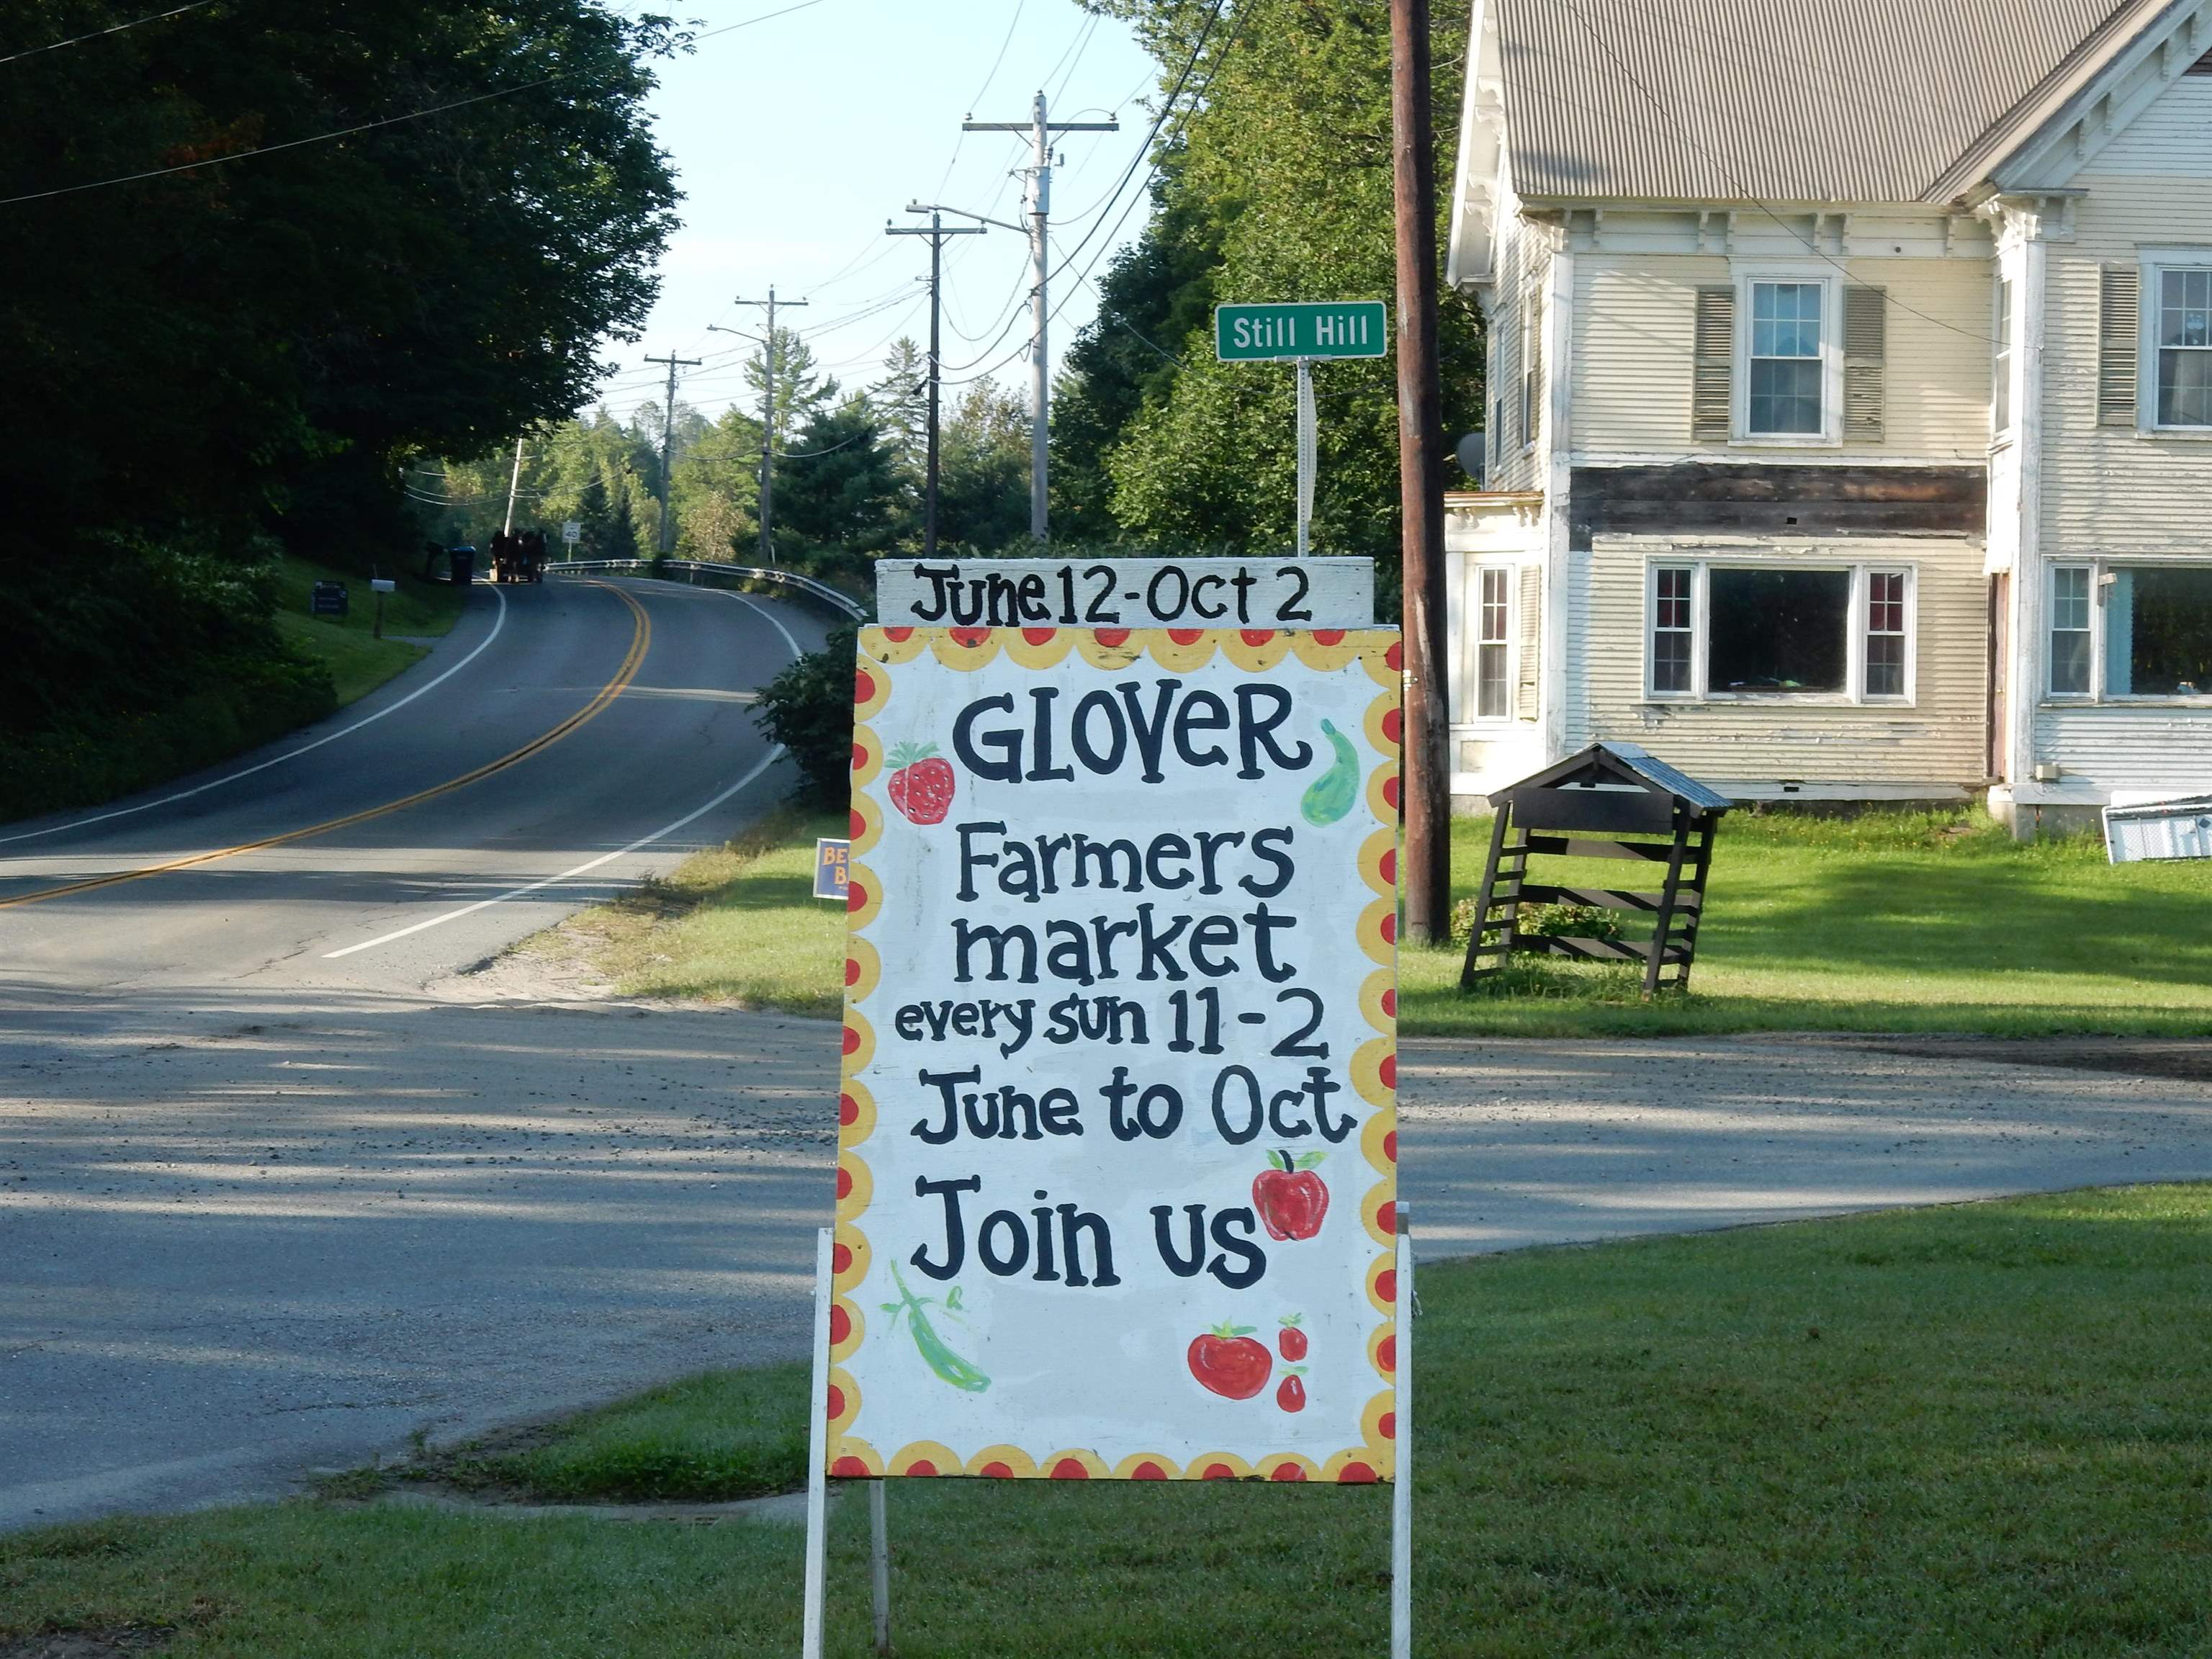 Still Hill
40
June 12-Oct 2
GLOVeR
Farmers
market
every sun 11-2
June to Oct
Join us